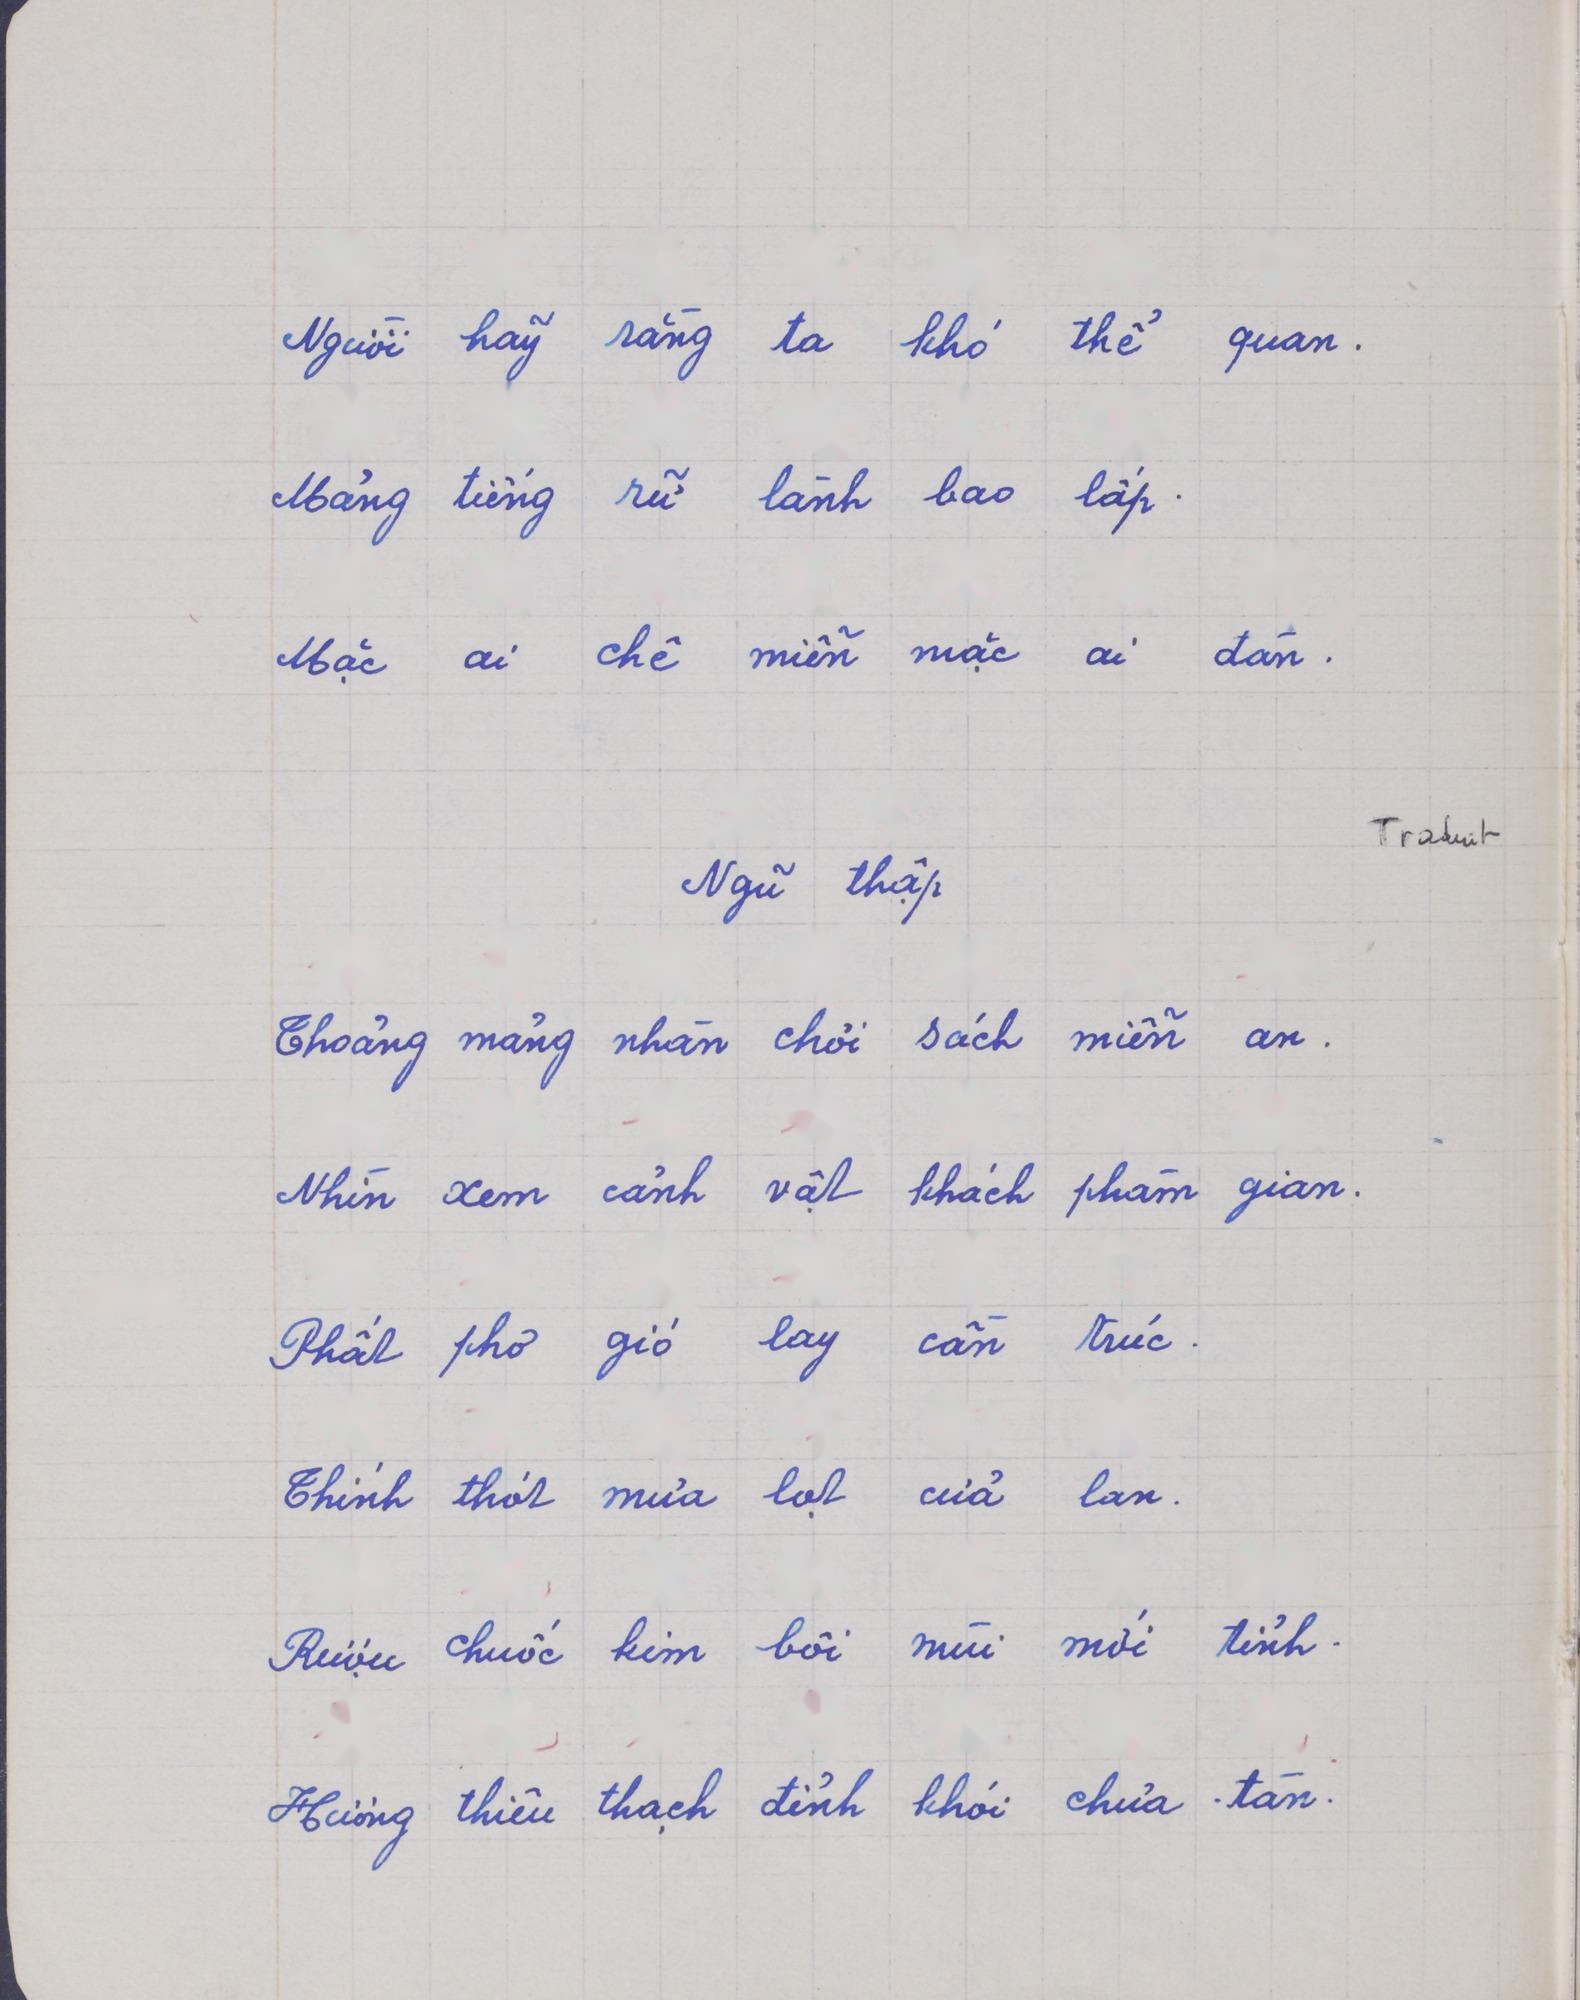 Người hãy rằng ta khó thể quan.
Mảng tiếng rữ lành bao lắp.
Mặc ai chê miễn mặc ai đàn.
Traduit
Ngũ thập
Thoảng mảng nhàn chơi sách miễn an.
Nhìn xem cảnh vật khách phàm gian.
Phất phơ gió lay cần trúc.
Thính thót mưa lọt cửa lan.
Rượu chuốc kim bôi mùi mới tỉnh.
Hương thiêu thạch đỉnh khói chưa tàn.